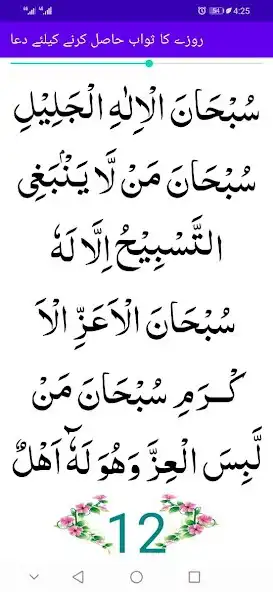 4:25
روزے کا ثواب حاصل کرنے کیلئے دعا
سُبْحَانَ الْاِلٰهِ الْجَلِيْلِ
سُبْحَانَ مَنْ لَّا يَنْۢبَغِى
التَّسْبِيْحُ اِلَّا لَهٗ
سُبْحَانَ الْاَعَزِّ الْاَ
كْــرَمِ سُبْحَانَ مَنْ
لَّبِسَ الْعِزَّ وَهُوَ لَهٗٓ اَهْلٌ
12